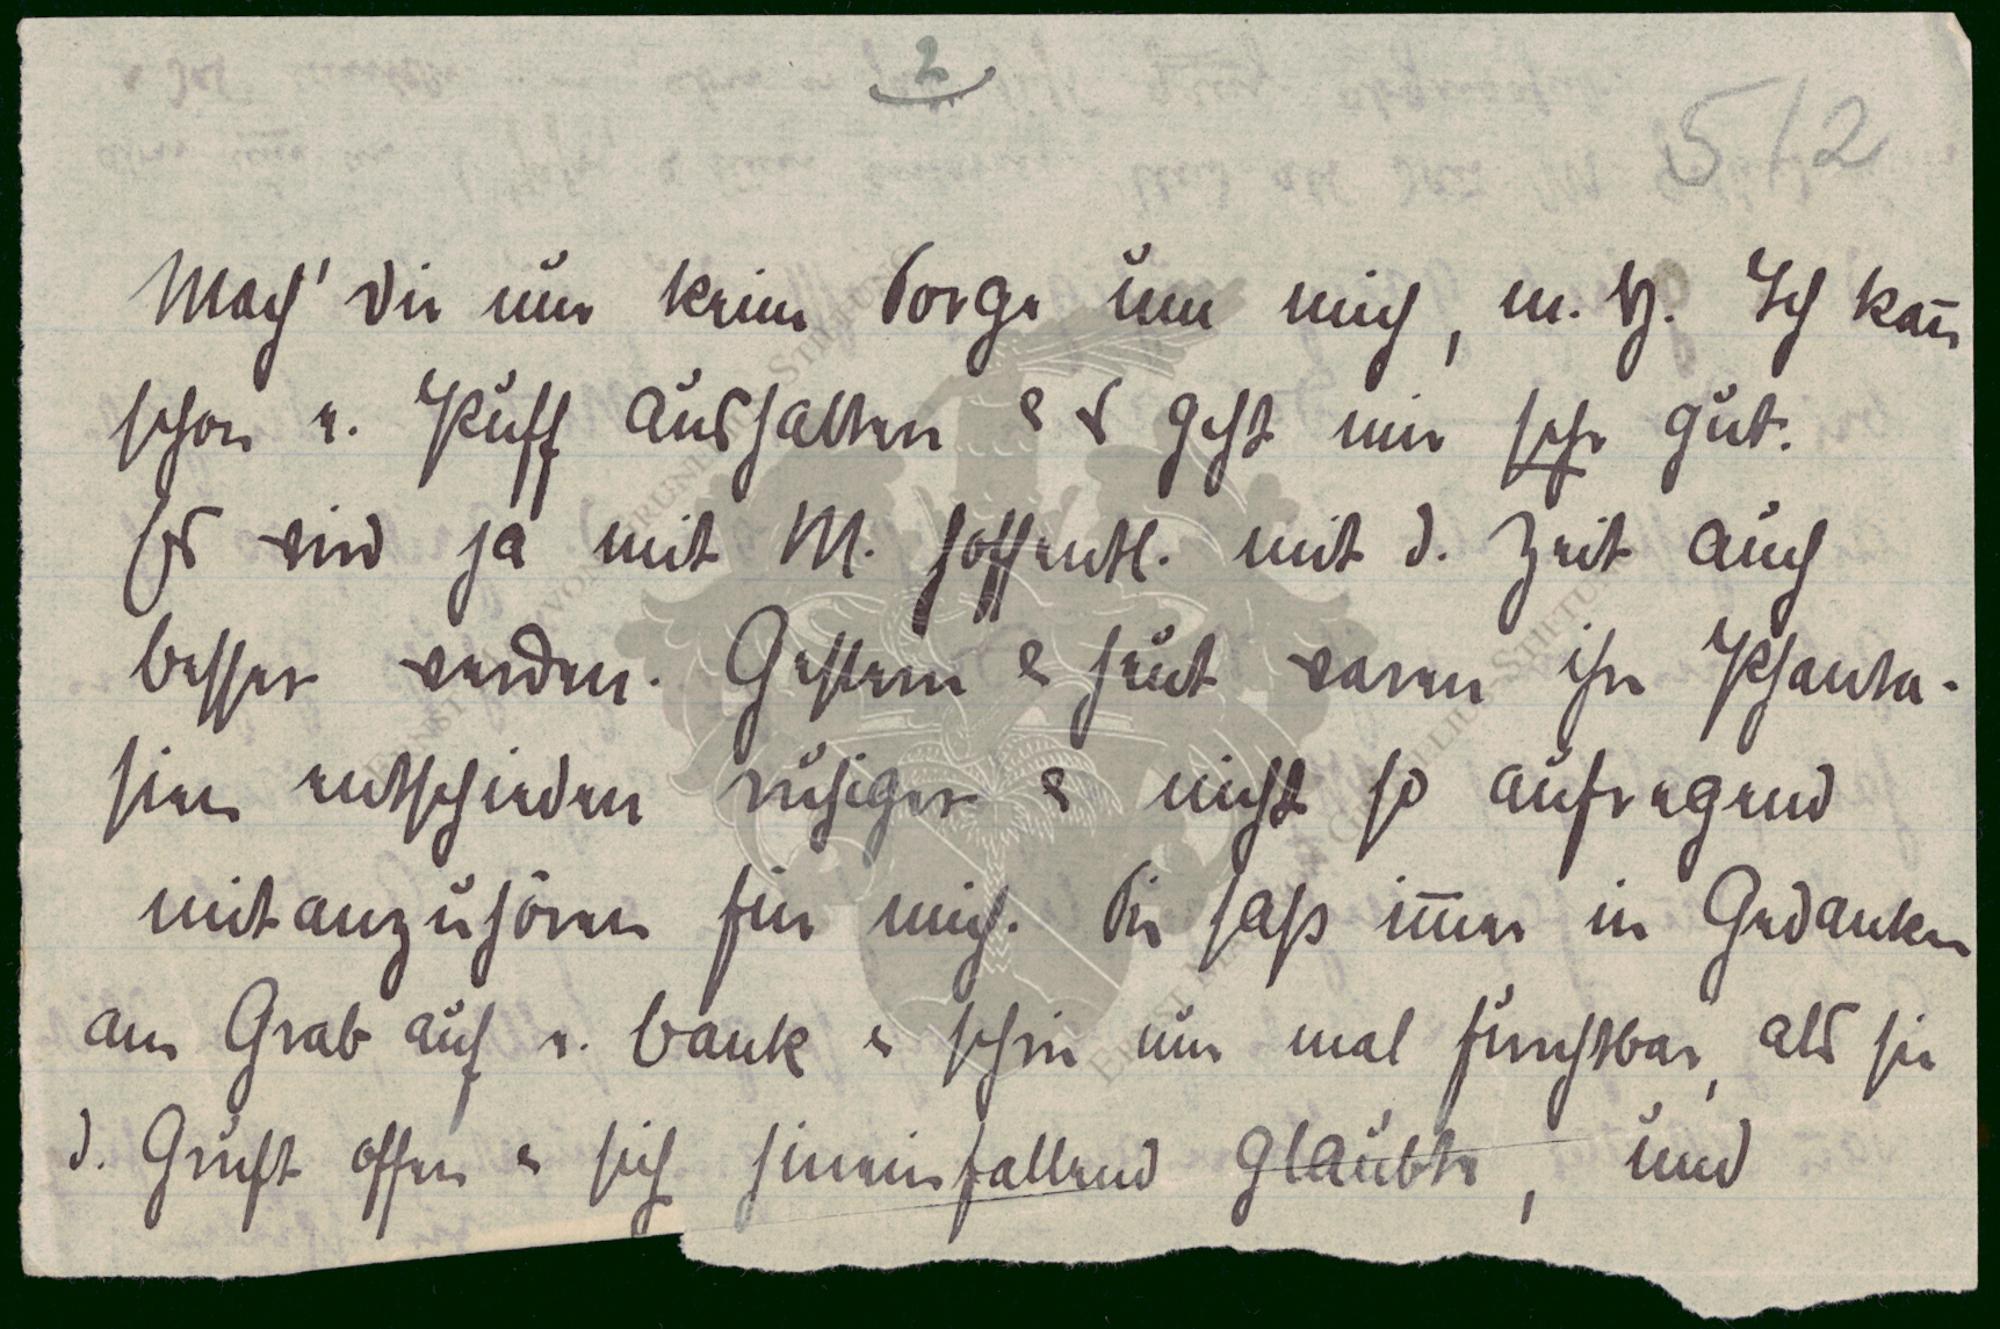 2
512
Mach' Dir nur keine Sorge um mich, m. H. Ich kan̄
schon e. Puff aushalten & s geht mir sehr gut.
Es wird ja mit M. hoffentl. mit d. Zeit auch
besser werden. Gestern & heut waren ihre Phanta-
sien entschieden ruhiger & nicht so aufregend
mitanzuhören für mich. Sie saß im̄er in Gedanken
am Grab auf e. Bank & schrie nur mal furchtbar, als sie
d. Gruft offen & sich hineinfallend glaubte, und